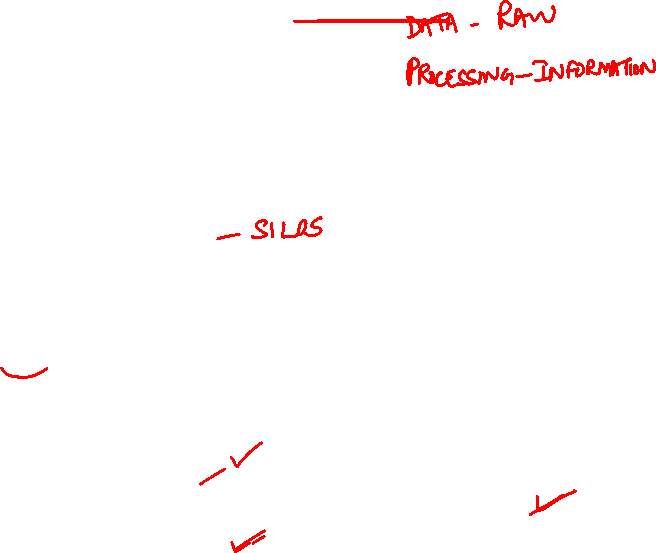 DATA - RAW
PROCESSING - INFORMATION
- SILOS